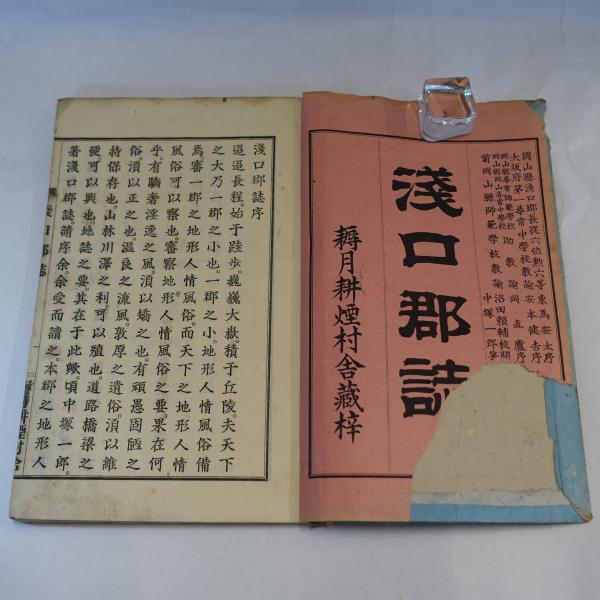 岡山縣淺口郡長從六位勲六等東馬安太序
大坂府第一尋常中學校教諭安本健吉序
岡山縣尋常師範學校
岡山縣岡山尋常中學校
助教諭岡直廬序
沼田頼輔校閲
前岡山縣師範學校教諭中塚一郎著
淺口郡誌
耨月耕煙村舍藏梓
淺口郡誌序
迢迢長程。始于跬步。巍巍大嶽。積于丘陵。夫天下
之大乃一郡之小也。一郡之小。地形人情風俗備
焉。審一郡之地形人情風俗。而天下之地形人情
風俗可以察也。審察地形人情風俗之要。果在何
乎。有驕奢淫逸之風。須以矯之也。有頑愚固陋之
俗。須以正之也。温良之流風。敦厚之遺俗。須以維
持保存也。山林川澤之利。可以殖也。道路橋梁之
便。可以興也。地誌之要。其在于此歟。頃中塚一郎。
著淺口郡誌。請序余。余受而讀之。本郡之地形人
淺口郡誌
耕煙村舍